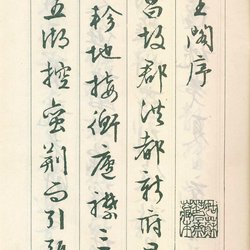 王閣序
昌故郡洪都新府
軫地接衡廬襟三
五湖控蠻荊而引